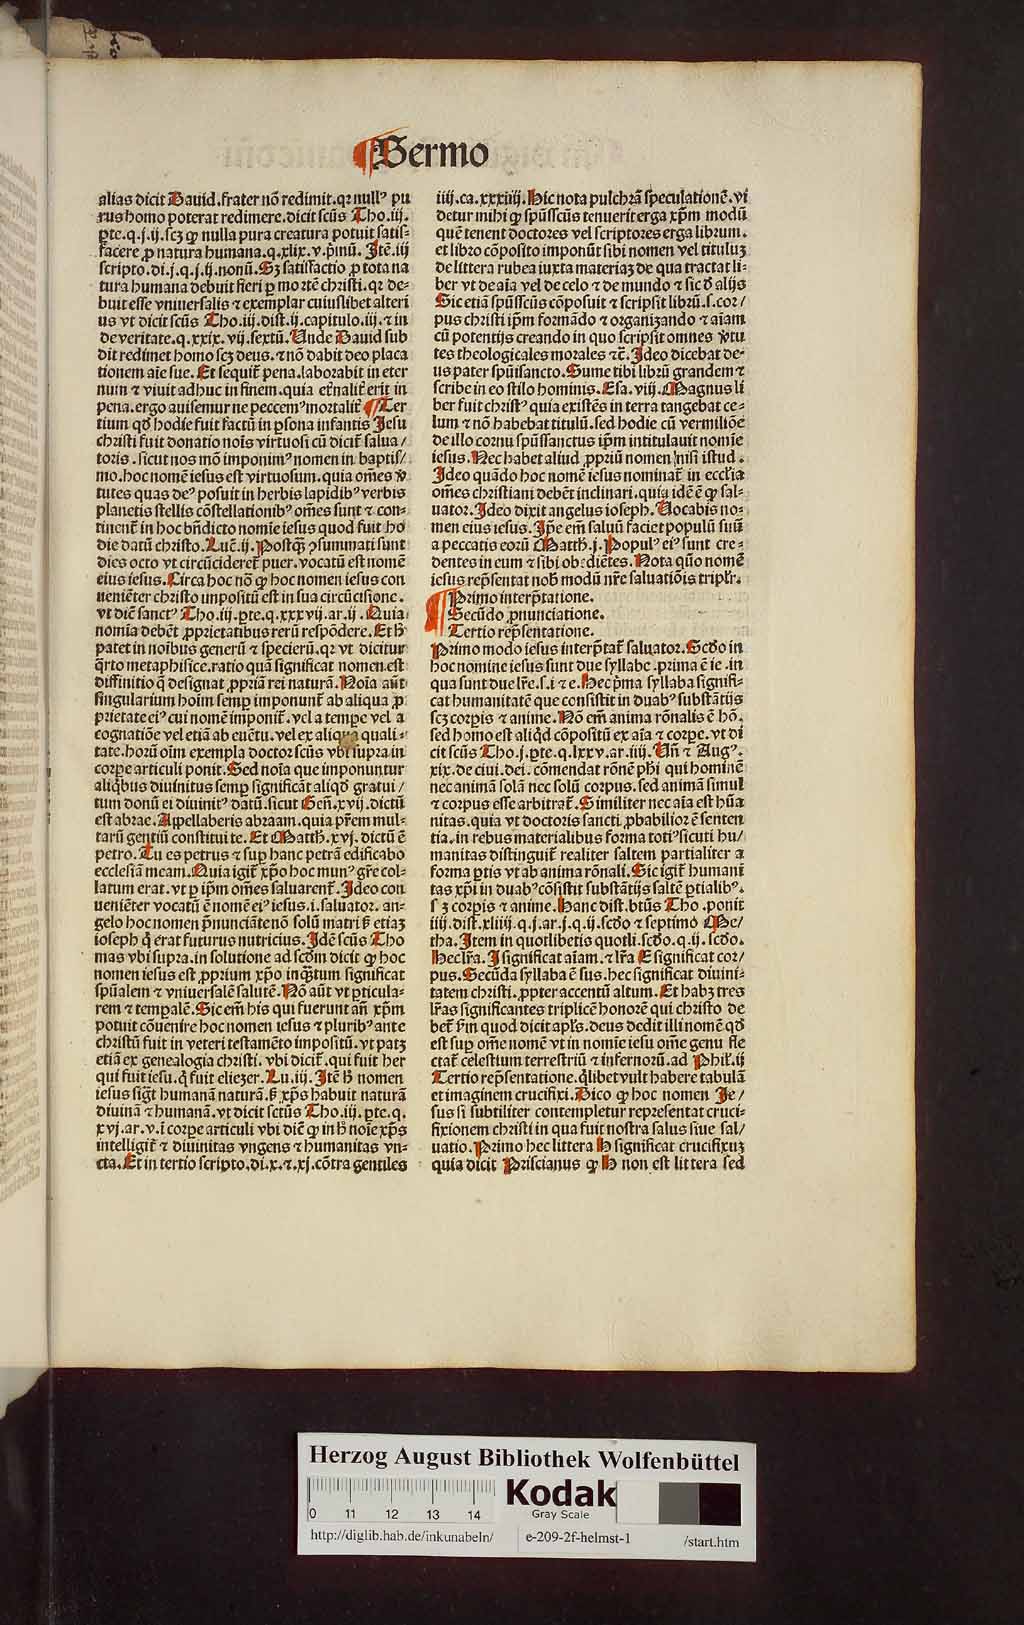 Sermo
alias dicit Dauid.frater nō redimit.qꝛ nullꝰ pu
rus homo poterat redimere.dicit scūs Tho.iij.
ꝑte.q.j.ij.scꝫ ꝙ nulla pura creatura potuit satis⸗
facere ꝓ natura humana.q.xlix.v.pⁱmū. Itē.iij
scripto.di.j.q.j.ij.nonū.Sꝫ satisfactio ꝓ tota na
tura humana debuit fieri ꝑ mortē christi.qꝛ de⸗
buit esse vniuersalis ⁊ exemplar cuiuslibet alteri
us vt dicit scūs Tho.iij.dist.ij.capitulo.iij.⁊ in
de veritate.q.xxix.vij.sextū.Unde Dauid sub
dit redimet homo scꝫ deus.⁊ nō dabit deo placa
tionem aīe sue. Et sequit᷑ pena.laborabit in eter
num ⁊ viuit adhuc in finem.quia et̉nalit̉ erit in
pena.ergo auisemur ne peccemꝰ mortalit̉ ¶Ter
tium qd̄ hodie fuit factū in ꝑsona infantis Jesu
christi fuit donatio noīs virtuosi cū dicit᷑ salua/
toris.sicut nos mō imponimꝰ nomen in baptis/
mo.hoc nomē iesus est virtuosum.quia om̄es v̉
tutes quas deꝰ posuit in herbis lapidibꝰ verbis
planetis stellis cōstellationibꝰ om̄es sunt ⁊ con⸗
tinent᷑ in hoc bn̄dicto nomīe iesus quod fuit ho
die datū christo.Luc̄.ij.Postqꝫ̄ ꝯsummati sunt
dies octo vt circūcideret᷑ puer.vocatū est nomē
eius iesus.Circa hoc nō ꝙ hoc nomen iesus con
ueniēter christo impositū est in sua circūcisione.
vt dic̄ sanctꝰ Tho.iij.ꝑte.q.xxxvij.ar.ij.Quia
nomīa debēt ꝓprietatibus rerū respōdere.Et ħ
patet in noībus generū ⁊ specierū.qꝛ vt dicitur
q̄rto metaphisice.ratio quā significat nomen est
diffinitio q̄ designat ꝓpriā rei naturā.Noīa aūt
singularium hoīm semꝑ imponunt᷑ ab aliqua ꝓ
prietate eiꝰ cui nomē imponit᷑.vel a tempe vel a
cognatiōe vel etiā ab euētu.vel ex aliqua quali⸗
tate.horū oīm exempla doctor scūs vbi supra in
corꝑe articuli ponit.Sed noīa que imponuntur
aliq̄bus diuinitus semꝑ significāt aliqd̄ gratui/
tum donū ei diuinitꝰ datū.sicut Gen̄.xvij.dictū
est abrae.Appellaberis abraam.quia pr̄em mul⸗
tarū gentiū constitui te.Et Matth.xvj.dictū ē
petro.Tu es petrus ⁊ suꝑ hanc petrā edificabo
ecclesiā meam.Quia igit᷑ xp̄o hoc munꝰ gr̄e col⸗
latum erat.vt ꝑ ip̄m om̄es saluarent᷑.Ideo con
ueniēter vocatū ē nomē eiꝰ iesus.i.saluator.an⸗
gelo hoc nomen p̄nunciāte nō solū matri ß etiaꝫ
ioseph q̇ erat futurus nutricius.Idē scūs Tho
mas vbi supra.in solutione ad scd̄m dicit ꝙ hoc
nomen iesus est ꝓprium xp̄o inqꝫ̄tum significat
spūalem ⁊ vniuersalē salutē.Nō aūt vt ꝑticula⸗
rem ⁊ temꝑalē.Sic em̄ his qui fuerunt an̄ xp̄m
potuit cōuenire hoc nomen iesus ⁊ pluribꝰ ante
christū fuit in veteri testamēto impositū.vt patꝫ
etiā ex genealogia christi.vbi dicit᷑.qui fuit her
qui fuit iesu.q̇ fuit eliezer.Lu.iij.Itē ħ nomen
iesus sigt̄ humanā naturā.ß xp̄s habuit naturā
diuinā ⁊ humanā.vt dicit sctūs Tho.iij.ꝑte.q.
xvj.ar.v.ī corꝑe articuli vbi dic̄ ꝙ in ħ noīe xp̄s
intelligit᷑ ⁊ diuinitas vngens ⁊ humanitas vn⸗
cta.Et in tertio scripto.di.x.⁊.xj.cōtra gentiles
iiij.ca.xxxiiij.Hic nota pulchrā speculationē.vi
detur mihi ꝙ spūsscūs tenuerit erga xp̄m modū
quē tenent doctores vel scriptores erga librum.
et libro cōposito imponūt sibi nomen vel tituluꝫ
de littera rubea iuxta materiaꝫ de qua tractat li⸗
ber vt de aīa vel de celo ⁊ de mundo ⁊ sic ď alijs
Sic etiā spūsscūs cōposuit ⁊ scripsit librū.s.cor/
pus christi ip̄m formādo ⁊ organizando ⁊ aīam
cū potentijs creando in quo scripsit omnes v̉tu
tes theologicales morales ⁊c̄.Ideo dicebat de⸗
us pater spūisancto.Sume tibi librū grandem ⁊
scribe in eo stilo hominis.Esa.viij.Magnus li
ber fuit christꝰ quia existēs in terra tangebat ce⸗
lum ⁊ nō habebat titulū.sed hodie cū vermiliōe
de illo cornu spūssanctus ip̄m intitulauit nomīe
iesus.Nec habet aliud ꝓpriū nomen nisi istud.
Ideo quādo hoc nomē iesus nominat᷑ in eccl̄ia
om̄es christiani debēt inclinari.quia idē ē ꝙ sal⸗
uator.Ideo dixit angelus ioseph.Uocabis no⸗
men eius iesus.Ip̄e em̄ saluū faciet populū suū
a peccatis eorū Matth.j.Populꝰ eiꝰ sunt cre⸗
dentes in eum ⁊ sibi obediētes.Nota quō nomē
iesus rep̄sentat nob̄ modū nr̄e saluatiōis tripl̄r.
¶Primo interp̄tatione.
Secūdo ꝓnunciatione.
Tertio rep̄sentatione.
Primo modo iesus interp̄tat᷑ saluator.Scd̄o in
hoc nomine iesus sunt due syllabe.prima ē ie.in
qua sunt due lr̄e.s.i ⁊ e.Hec pⁱma syllaba signifi⸗
cat humanitatē que consistit in duabꝰ substātijs
scꝫ corꝑis ⁊ anime.Nō em̄ anima rōnalis ē hō.
sed homo est aliqd̄ cōpositū ex aīa ⁊ corꝑe.vt di
cit scūs Tho.j.ꝑte.q.lxxv.ar.iiij.Un̄ ⁊ Augꝰ.
xix.de ciui.dei.cōmendat rōnē ph̄i qui hominē
nec animā solā nec solū corpus.sed animā simul
⁊ corpus esse arbitrat᷑.Similiter nec aīa est hūa
nitas.quia vt doctoris sancti ꝓbabilior ē senten
tia.in rebus materialibus forma totiꝰ sicuti hu/
manitas distinguit᷑ realiter saltem partialiter a
forma ꝑtis vt ab anima rōnali.Sic igit᷑ humani
tas xp̄i in duabꝰ cōsistit substātijs saltē ꝑtialibꝰ.
s ꝫ corꝑis ⁊ anime.Hanc dist.btūs Tho.ponit
iiij.dist.xliiij.q.j.ar.j.q.ij.scd̄o ⁊ septimo Me/
tha.Item in quotlibetis quotli.scd̄o.q.ij.scd̄o.
Hec lr̄a.I significat aīam.⁊ lr̄a E significat cor/
pus.Secūda syllaba ē sus.hec significat diuini⸗
tatem christi.ꝓpter accentū altum.Et habꝫ tres
lr̄as significantes triplicē honorē qui christo de
bet᷑ ẜm quod dicit apl̄s.deus dedit illi nomē qd̄
est suꝑ om̄e nomē vt in nomīe iesu om̄e genu fle
ctat᷑ celestium terrestriū ⁊ infernorū.ad Phil̄.ij
Tertio rep̄sentatione.q̇libet vult habere tabulā
et imaginem crucifixi.Dico ꝙ hoc nomen Je/
sus si subtiliter contempletur representat cruci⸗
fixionem christi in qua fuit nostra salus siue sal/
uatio.Primo hec littera H significat crucifixuꝫ
quia dicit Priscianus ꝙ H non est littera sed
Herzog August Bibliothek Wolfenbüttel
0 11 12 13 14
Kodak
Gray Scale
http://diglib.hab.de/inkunabeln/ e-209-2f-helmst-1 /start.htm